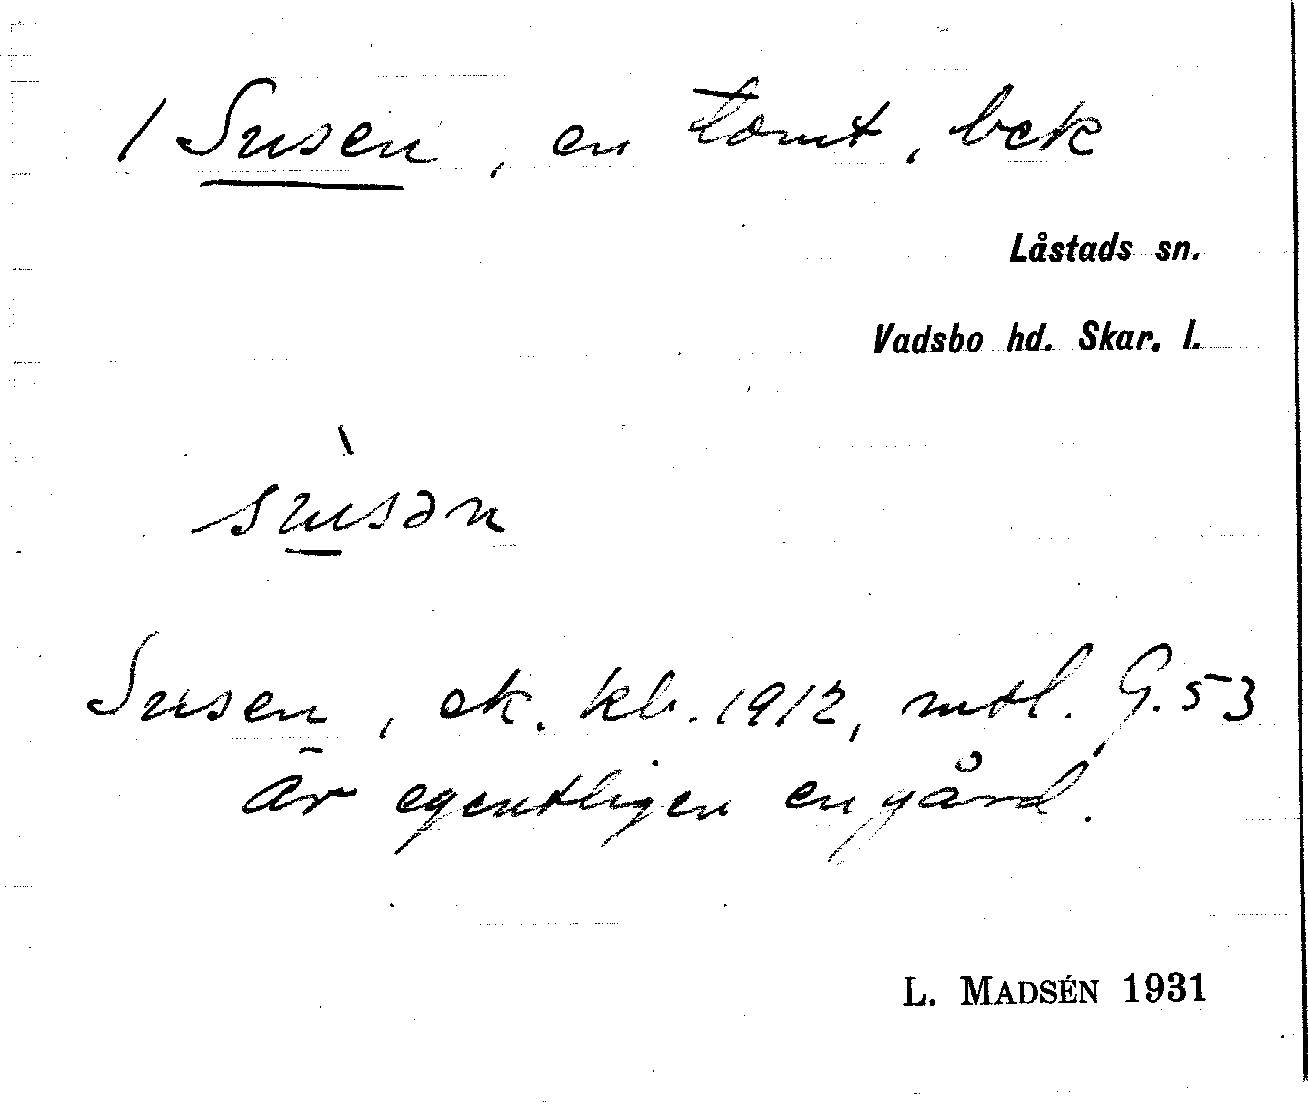 / Susen, en tomt, bek
Låstads sn.
Vadsbo hd. Skar. l.
sùsən
Susen, ek. kb. 1912, mtl. G. 53
är egentligen en gård.
L. MADSÉN 1931